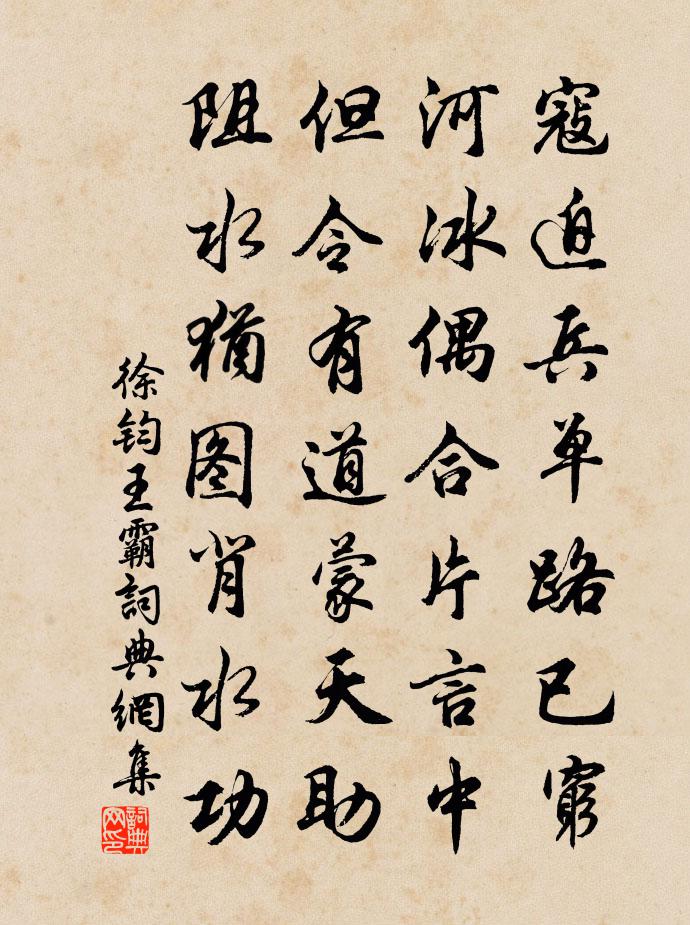 寇迫兵单路已窮
河冰偶合片言中
但令有道蒙天助
阻水猶图背水功
徐鈞王霸詞典網集
詞典网印